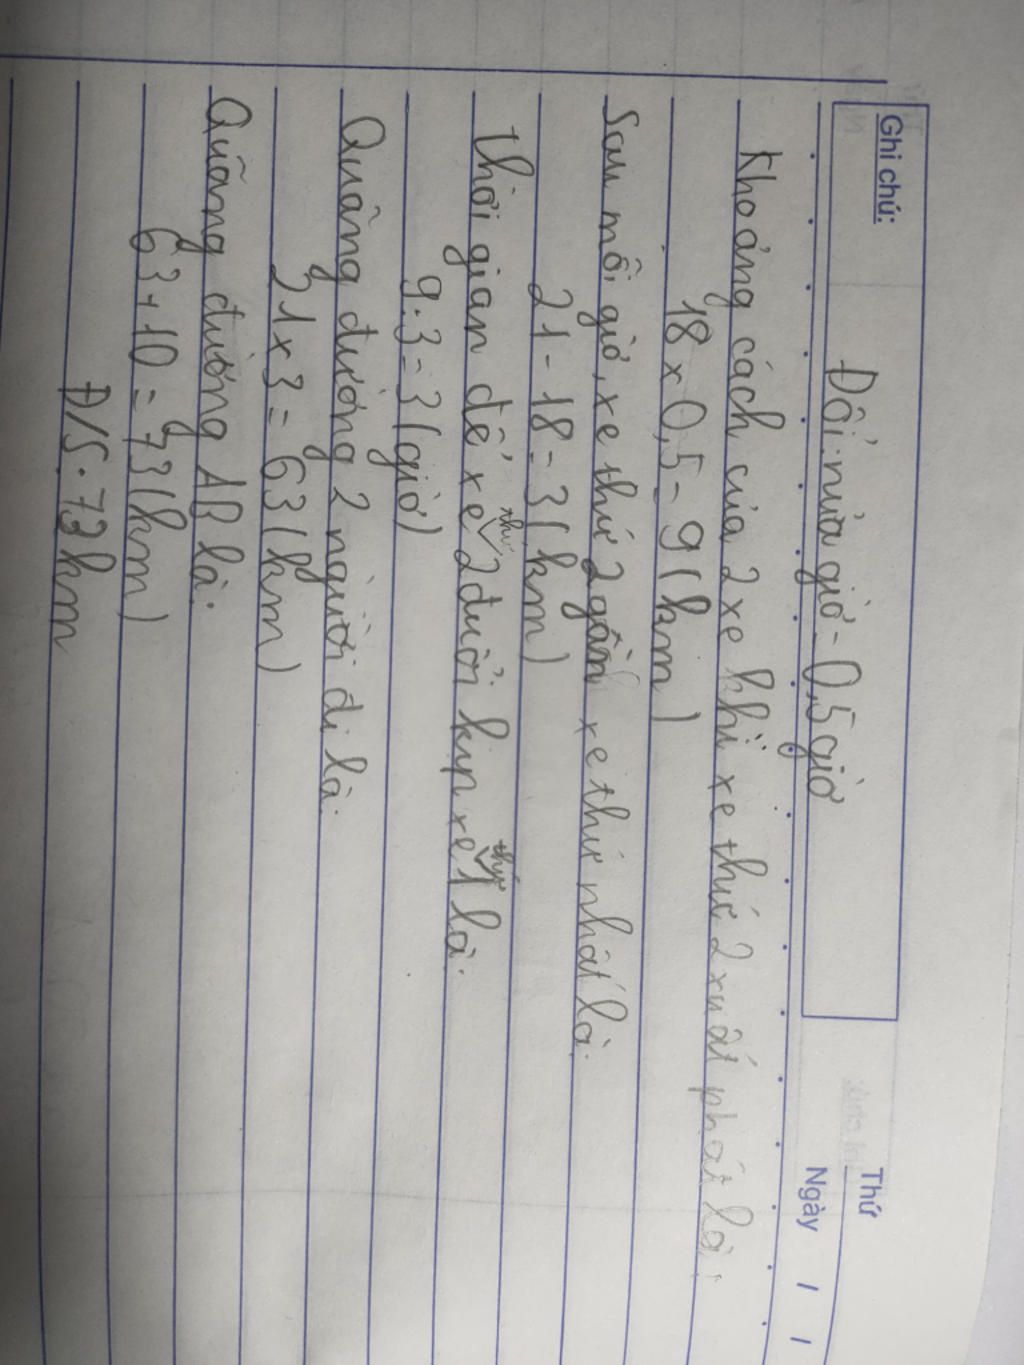 Ghi chú:
Thứ
Ngày / /
Đổi: nửa giờ = 0,5 giờ
Khoảng cách của 2 xe khi xe thứ 2 xuất phát là:
18 x 0,5 = 9 (km)
Sau mỗi giờ, xe thứ 2 gần xe thứ nhất là:
21 - 18 = 3 (km)
Thời gian để xe thứ 2 đuổi kịp xe thứ 1 là:
9 : 3 = 3 (giờ)
Quãng đường 2 người đi là:
21 x 3 = 63 (km)
Quãng đường AB là:
63 + 10 = 73 (km)
Đ/S: 73 km